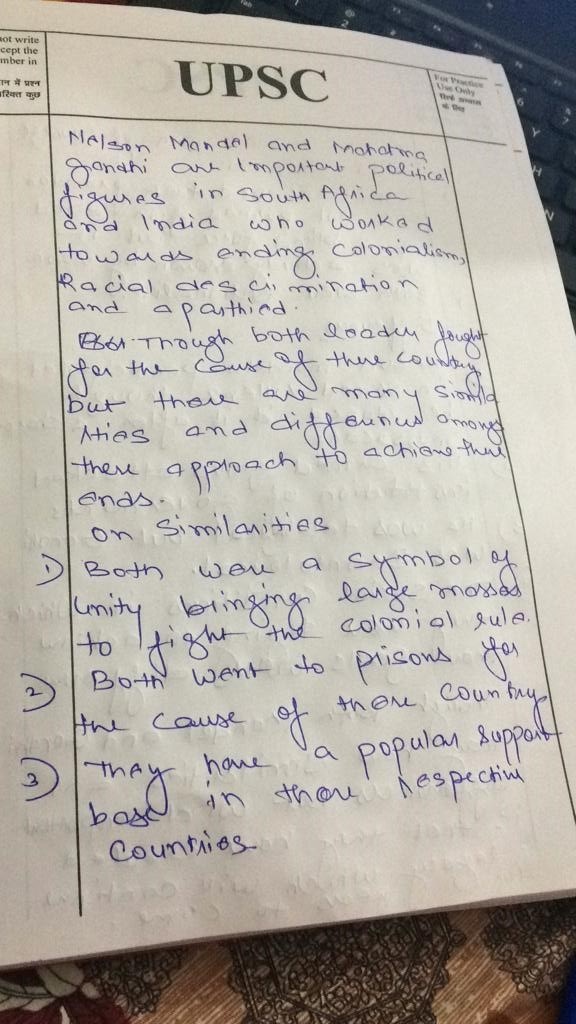 not write
cept the
mber in
UPSC
For Practice
Use Only
Nelson Mandel and Mahatma
gandhi are important political
figures in South Africa
and India who worked
towards ending colonialism,
Racial descrimination
and aparthied.
Though both leader fought
for the cause of there country
but there are many simila
rties and differences among
there approach to achieve there
ends.
on Similarities
1) Both were a symbol of
unity bringing large masses
to fight the colonial rule.
2) Both went to prisons for
the cause of there country
3) They have a popular support
base in there respective
countries.